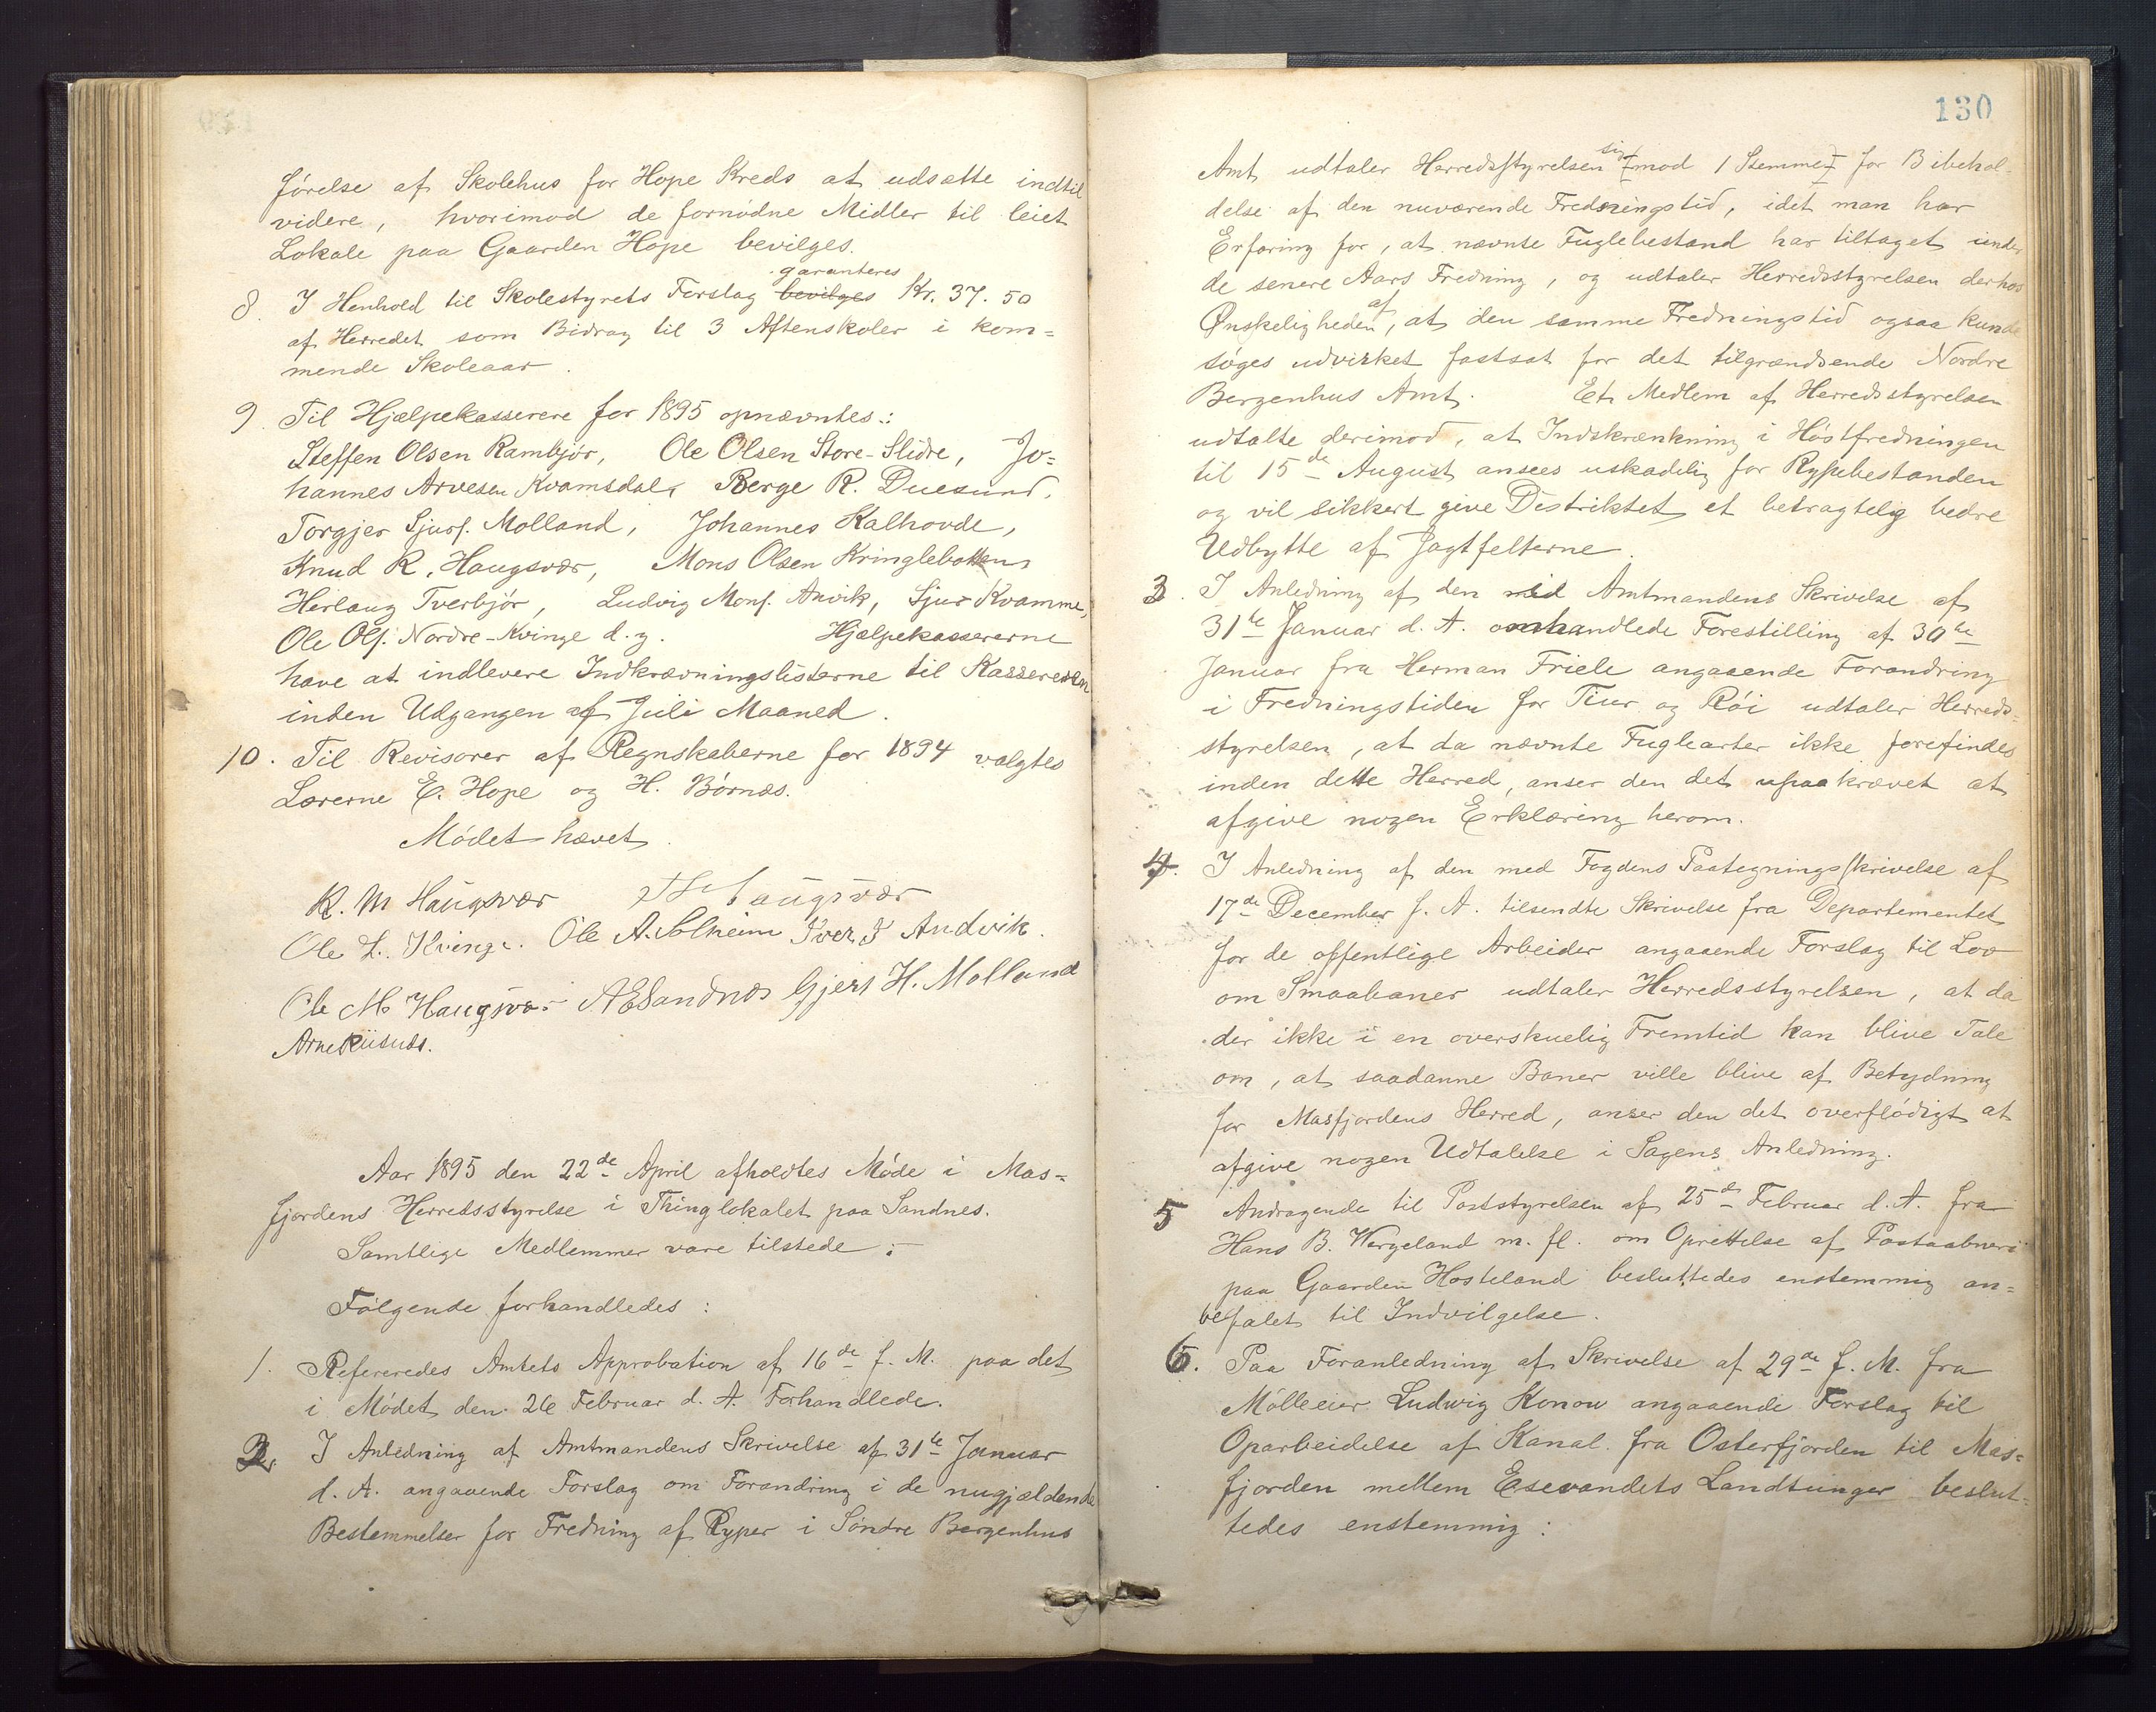 førelse af Skolehus for Hope Kreds at udsætte indtil
videre, hvorimod de fornødne Midler til leiet
Lokale paa Gaarden Hope bevilges.
8. I Henhold til Skolestyrets Forslag bevilges garanteres Kr. 37.50
af Herredet som Bidrag til 3 Aftenskoler i kom=
mende Skoleaar.
9. Til Hjælpekasserere for 1895 opnævntes:
Steffen Olsen Rambjør, Ole Olsen Store-Slidre, Jo=
hannes Arvesen Kvamsdal, Berge R. Duesund,
Torgjer Sjurs. Molland, Johannes Kalhovde,
Knud R. Haugsvær, Mons Olsen Kringlebotten
Herlaug Tverbjør, Ludvig Mons. Anvik, Sjur Kvamme,
Ole Ols. Nordre-Kvinge d.y. Hjælpekassererne
have at indlevere Indkrævningslisterne til Kassereren
inden Udgangen af Juli Maaned.
10. Til Revisorer af Regnskaberne for 1894 valgtes
Lærerne E. Hope og H. Børnæs.
Mødet hævet.
R. M Haugsvær Haugsvær
Ole L. Kvinge. Ole A. Solheim Iver I Andvik.
Ole M. Haugsvær A E Sandnæs Gjert H. Molland
Arne Riisnæs.
Aar 1895 den 22de April afholdtes Møde i Mas=
fjordens Herredsstyrelse i Thinglokalet paa Sandnes.
Samtlige Medlemmer vare tilstede:
Følgende forhandledes:
1. Refereredes Amtets Approbation af 16de f. M. paa det
i Mødet den 26 Februar d. A. Forhandlede.
2. I Anledning af Amtmandens Skrivelse af 31te Januar
d. A. angaaende Forslag om Forandring i de nugjældende
Bestemmelser for Fredning af Ryper i Søndre Bergenhus
130
Amt udtaler Herredsstyrelsen sig (mod 1 Stemme) for Bibehol-
delse af den nuværende Fredningstid, idet man har
Erfaring for, at nævnte Fuglebestand har tiltaget under
de senere Aars Fredning, og udtaler Herredsstyrelsen derhos
Ønskeligheden af, at den samme Fredningstid ogsaa kunde
søges udvirket fastsat for det tilgrændsende Nordre
Bergenhus Amt. Et Medlem af Herredsstyrelsen
udtalte derimod, at Indskrænkning i Høstfredningen
til 15de August ansees uskadelig for Rypebestanden
og vil sikkert give Distriktet et betragtelig bedre
Udbytte af Jagtfelterne.
3. I Anledning af den ved Amtmandens Skrivelse af
31te Januar d. A. omhandlede Forestilling af 30te
Januar fra Herman Friele angaaende Forandring
i Fredningstiden for Tiur og Røi udtaler Herreds-
styrelsen, at da nævnte Fuglearter ikke forefindes
inden dette Herred, anser den det upaakrævet at
afgive nogen Erklæring herom.
4. I Anledning af den med Fogdens Paategningsskrivelse af
17de December f. A. tilsendte Skrivelse fra Departementet
for de offentlige Arbeider angaaende Forslag til Lov
om Smaabaner udtaler Herredsstyrelsen, at da
der ikke i en overskuelig Fremtid kan blive Tale
om, at saadanne Baner ville blive af Betydning
for Masfjordens Herred, anser den det overflødigt at
afgive nogen Udtalelse i Sagens Anledning.
5 Andragende til Poststyrelsen af 25de Februar d. A. fra
Hans B. Wergeland m. fl. om Oprettelse af Postaabneri
paa Gaarden Hosteland besluttedes enstemmig an=
befalet til Indvilgelse.
6. Paa Foranledning af Skrivelse af 29de f. M. fra
Mølleeier Ludwig Konow angaaende Forslag til
Oparbeidelse af Kanal fra Osterfjorden til Mas=
fjorden mellem Esevandets Landtunger beslut-
tedes enstemmig: